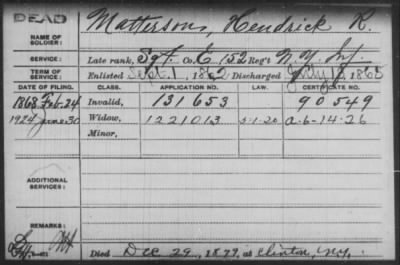 DEAD
Mattersons, Hendrick R.
NAME OF SOLDIER:
SERVICE: Late rank, Sgt. Co. E, 152 Reg't N.Y. Inf.
TERM OF SERVICE: Enlisted Sept. 1, 1862 Discharged July 13, 1865
DATE OF FILING. CLASS. APPLICATION NO. LAW. CERTIFICATE NO.
1868 Feb. 24 Invalid, 131653 90549
1924 June 30 Widow, 1221013 5-1-20 a-6-14-26
Minor,
ADDITIONAL SERVICES:
REMARKS:
Died Dec 29, 1879, at Clinton, N.Y.